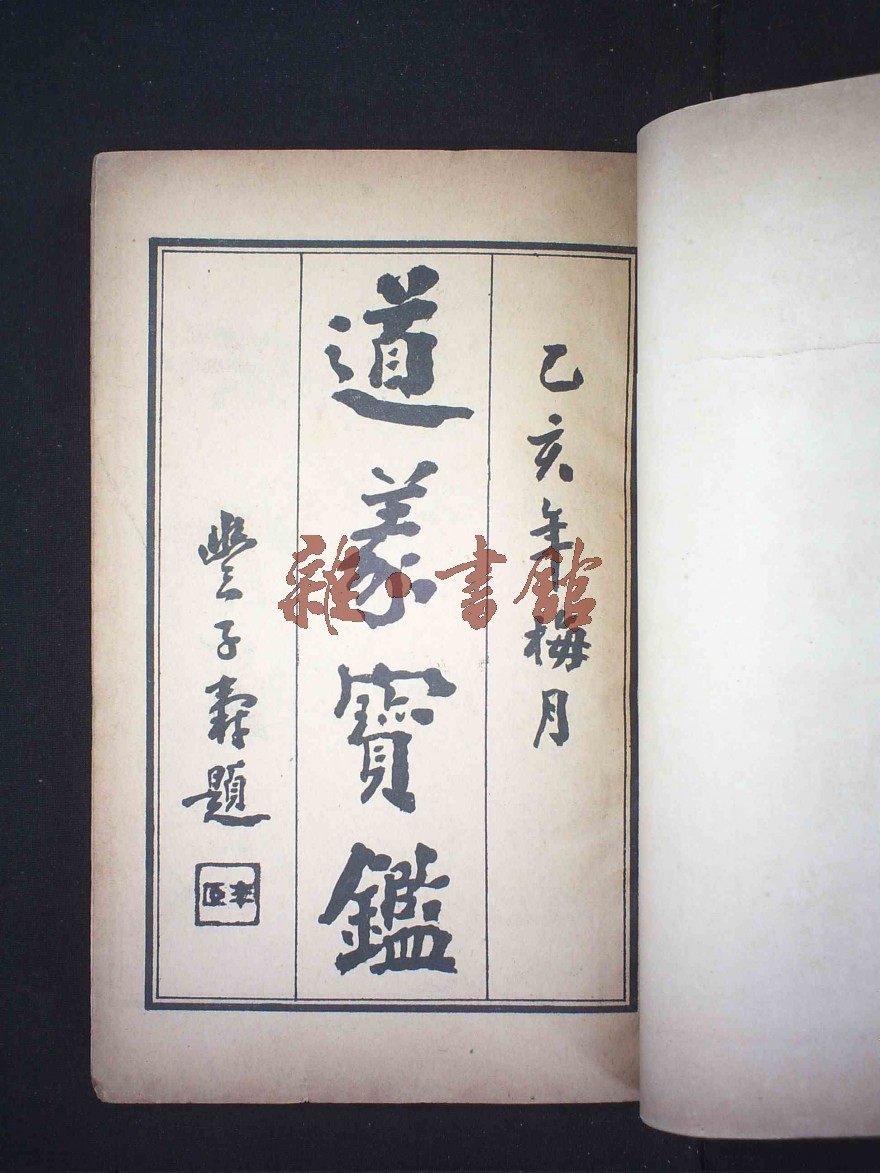 乙亥年梅月
道義寶鑑
豐子壽題
雜·書館